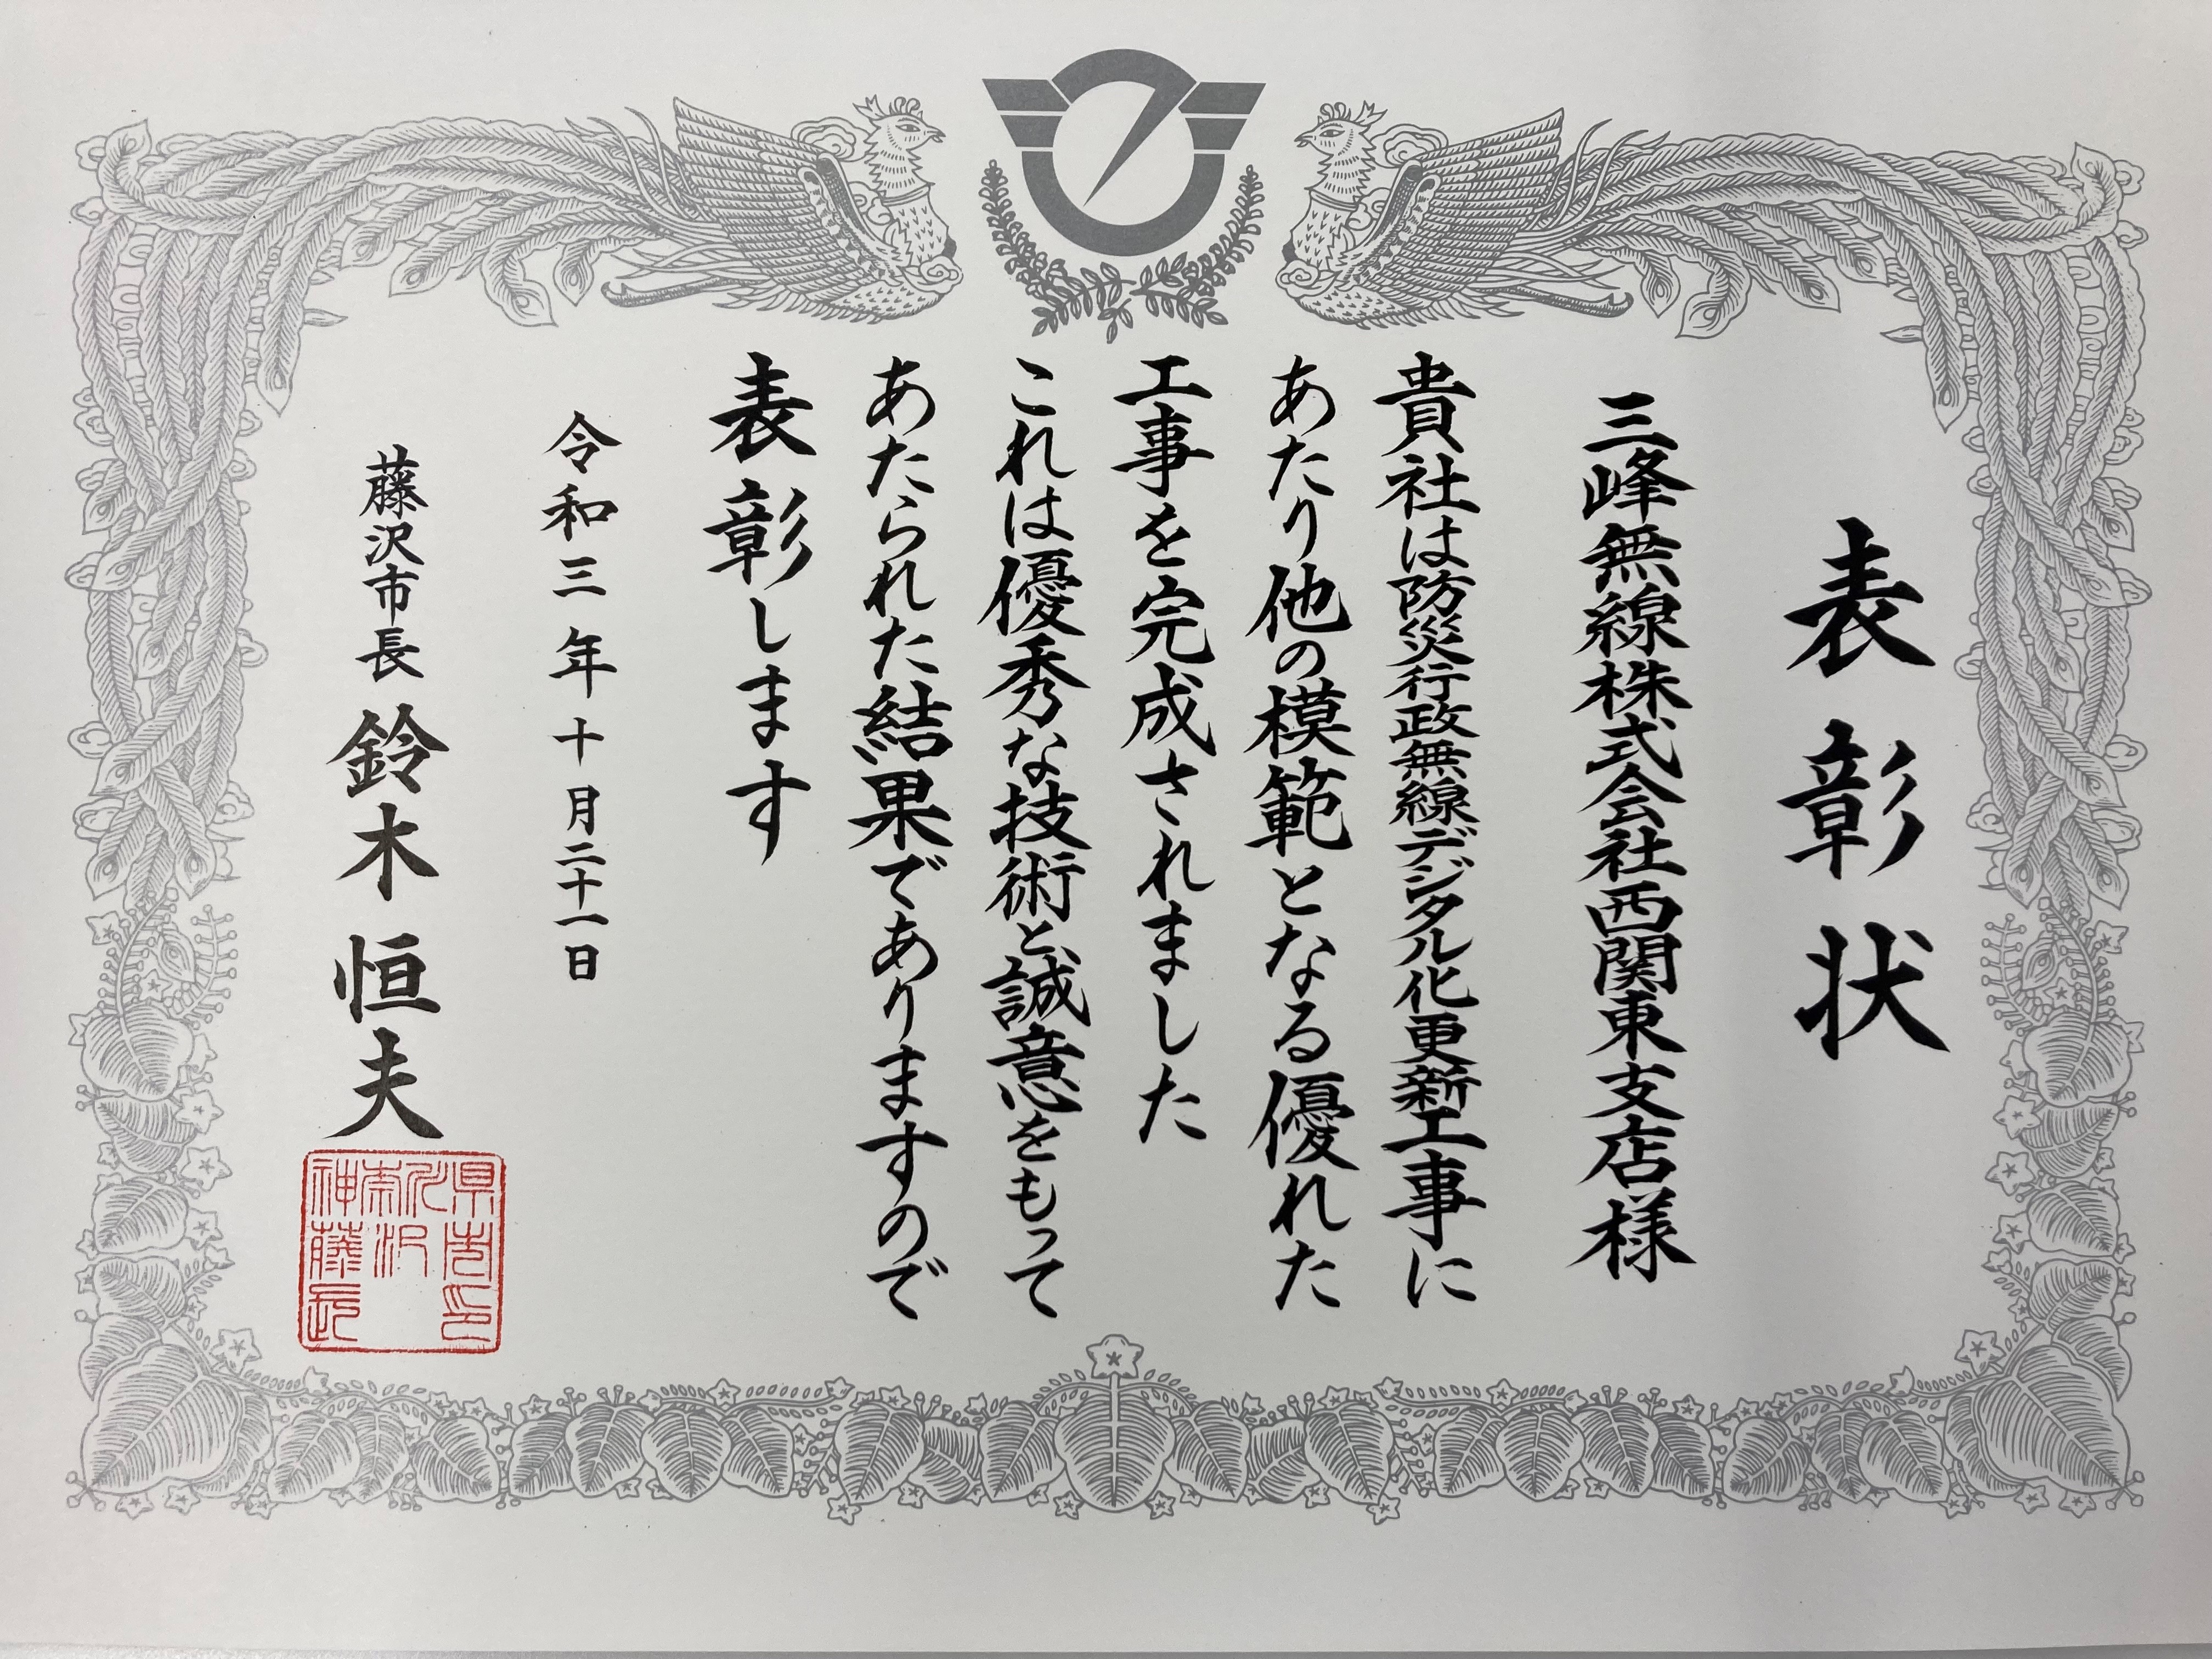 表彰状
三峰無線株式会社西関東支店様
貴社は防災行政無線デジタル化更新工事に
あたり他の模範となる優れた
工事を完成されました
これは優秀な技術と誠意をもって
あたられた結果でありますので
表彰します
令和三年十月二十一日
藤沢市長 鈴木恒夫
神奈川県
藤沢市
長印